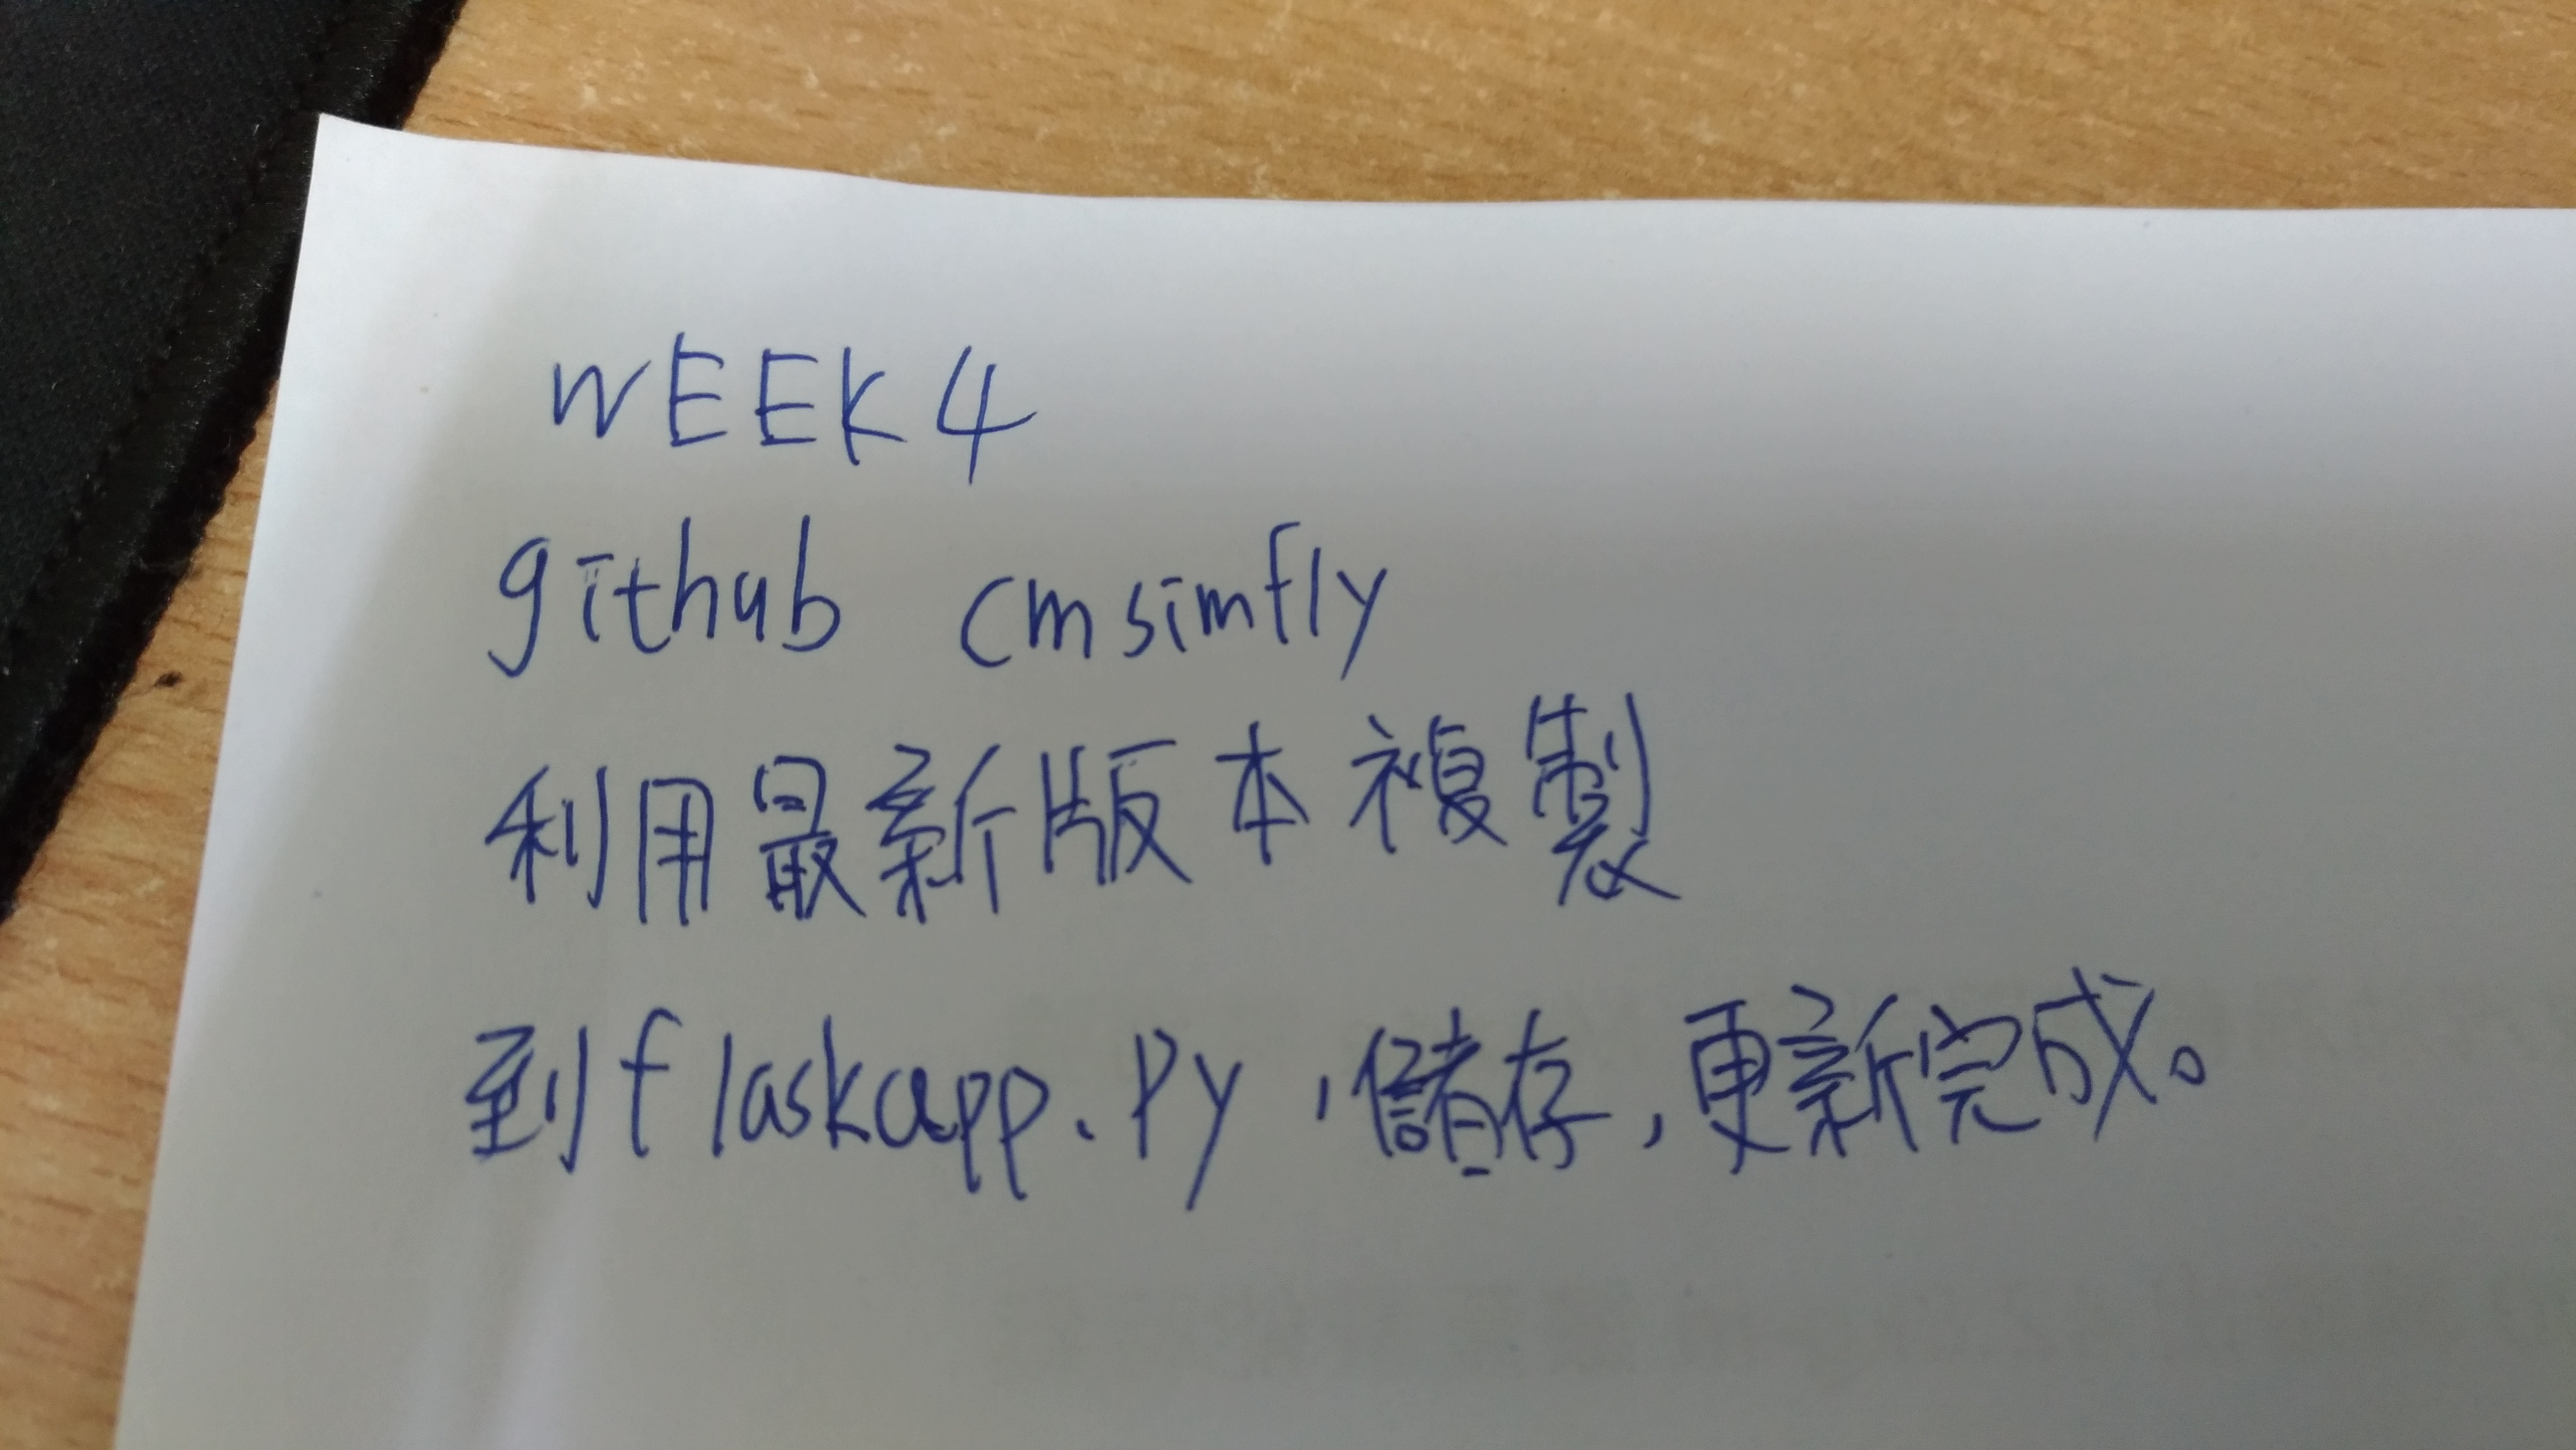 WEEK 4
github cmsimfly
利用最新版本複製
到flaskapp.py，儲存，更新完成。